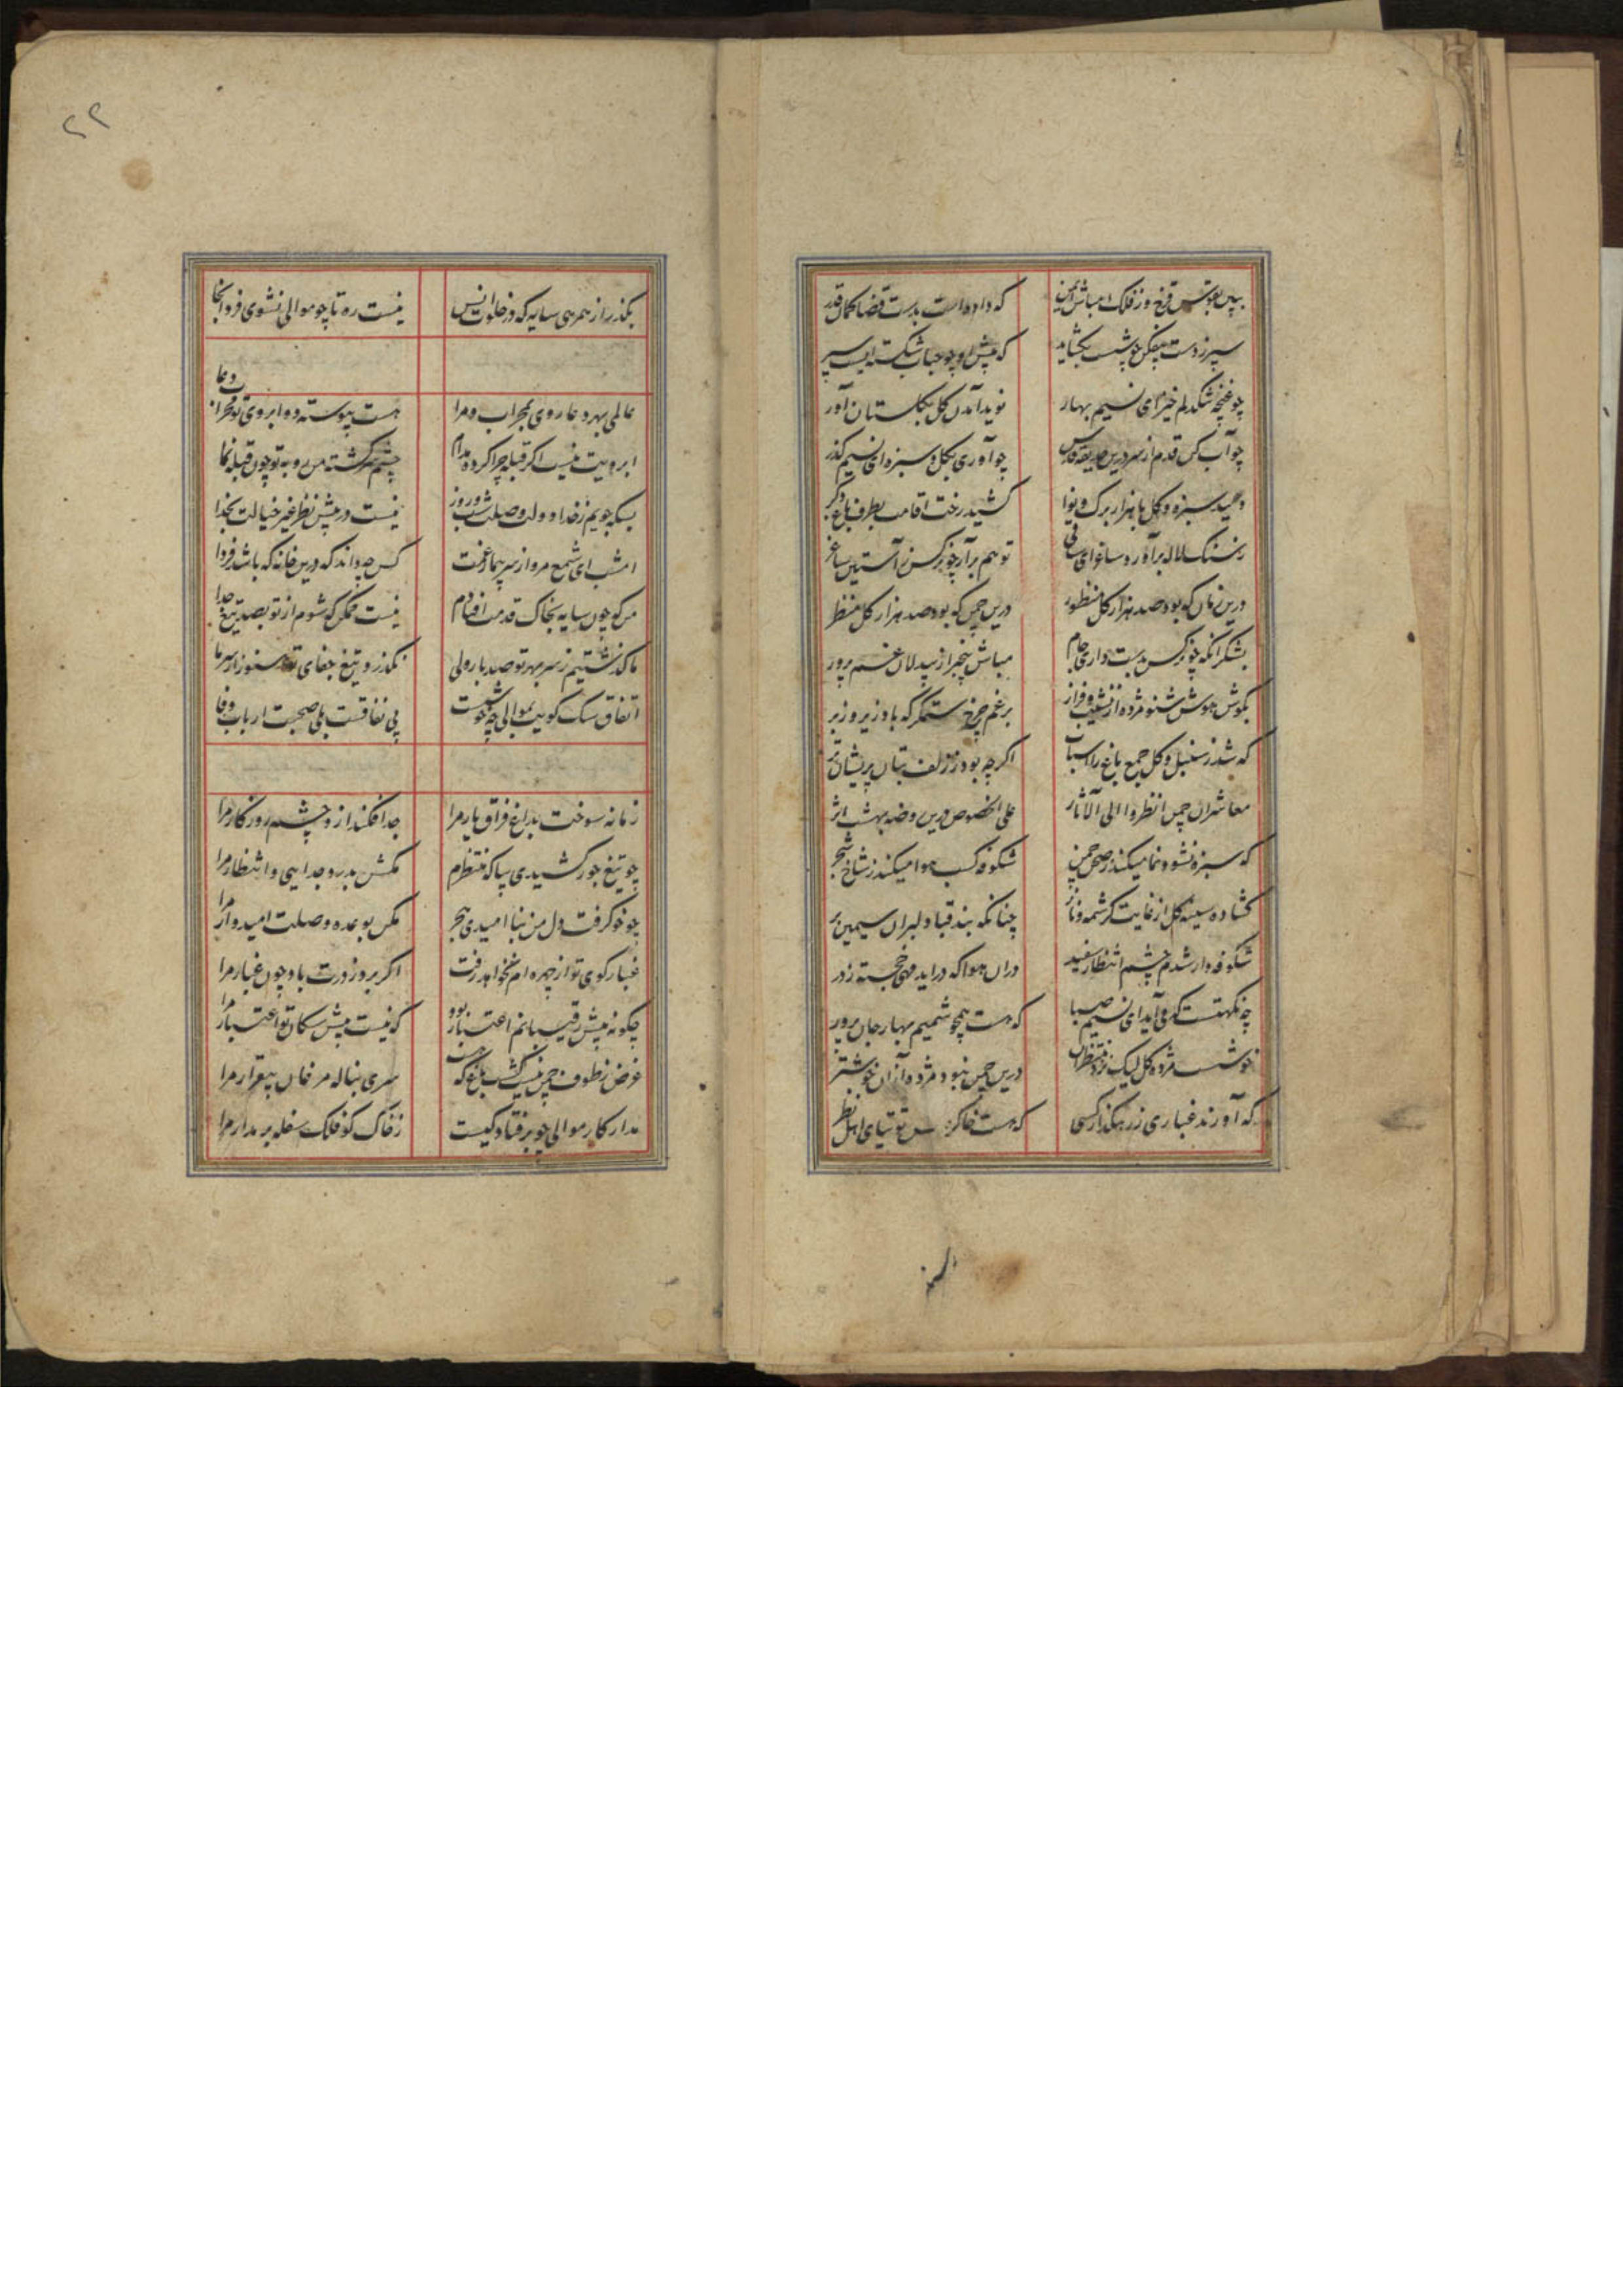 ببین بقوس قزح وز فلک مباش ایمن
که داده است بدست قضا کمان قدر
سپر ز دست بیفکن چو شست بگشاید
که پیش او چو حباب شکسته ایست سپر
چو غنچه تنگدلم خیز ای نسیم بهار
نوید آمدن گل بگلستان آور
چو آب کن قدم از سر درین حدیقه قدس
چو آوری بگل و سبزه ای نسیم گذر
دمید سبزه و گل با هزار برگ و نوا
کشید رخت اقامت بطرف باغ دگر
ز سنگ لاله برآورد ساغر ای ساقی
تو هم برآر چو نرگس ز آستین ساغر
درین زمان که بود صد هزار گل منظور
درین چمن که بود صد هزار گل منظر
بشکر آنکه چو نرگس بدست داری جام
مباش بیخبر از بیدلان غم پرور
بگوش هوش شنو مژده از نشیب و فراز
برغم چرخ ستمگر که باد زیر و زبر
که شد ز سنبل و گل جمع باغ را اسباب
اگر چه بود ز زلف بتان پریشان تر
معاشران چمن انظروا الی الآثار
علی الخصوص درین روضه بهشت اثر
که سبزه نشو و نما میکند ز صحن چمن
شکوفه کسب هوا میکند ز شاخ شجر
گشاده سینه گل از غایت کرشمه و ناز
چنانکه بند قبا دلبران سیمین بر
شکوفه وار شدم چشم انتظار سفید
دران هوا که دراید مهی خجسته ز در
چه نکهتست که می آید ای نسیم صبا
که هست همچو شمیم بهار جان پرور
خوشست مژده گل لیک نزد منتظران
درین چمن نبود مژده از آن خوشتر
که آورند غباری ز رهگذار کسی
که هست خاک توتیای اهل نظر
۲۲
بگذر از همرهی سایه که در خلوت انس
نیست ره تا چو موالی نشوی فرد آنجا
عالمی بهر دعا روی بمحراب و مرا
هست پیوسته دو ابروی تو محراب دعا
ابرویت نیست اگر قبله چرا کرده مدام
چشم سرگشته من رو به تو چون قبله نما
بسکه جویم ز خدا دولت وصلت شب و روز
نیست در پیش نظر غیر خیالت بخدا
امشب ای شمع مرو از سر بیمار غمت
کس چه داند که درین خانه که باشد فردا
من که چون سایه بخاک قدمت افتادم
نیست ممکن که شوم از تو بصد تیغ جدا
ما گذشتیم ز سر بهر تو صد بار ولی
نگذرد تیغ جفای تو هنوز از سر ما
اتفاق سگ کویت بموالی چه خوشست
بی نفاقست بلی صحبت ارباب وفا
زمانه سوخت بداغ فراق یار مرا
جدا فکند از دو چشم روزگار مرا
چو تیغ جور کشیدی بیا که منتظرم
مکش بدرد جدایی و انتظار مرا
چو خو گرفت دل من بنا امیدی هجر
مکن بوعده وصلت امیدوار مرا
غبار کوی تو از چهره ام نخواهد رفت
اگر برد ز درت باد چون غبار مرا
چگونه پیش رقیبانم اعتبار بود
که نیست پیش سگان تو اعتبار مرا
غرض ز طوف چمن نیست گشت باغ که هست
سری بناله مرغان بیقرار مرا
مدار کار موالی چو بر فتادگیست
ز خاک کو فلک سفله بر مدار مرا